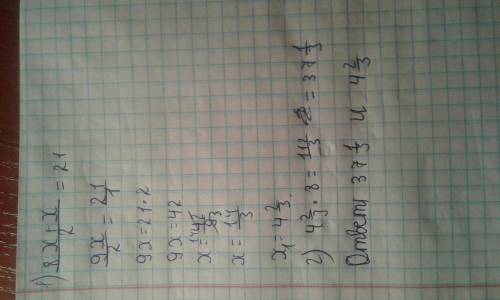 1) (8x+x)/2 = 21
9x/2 = 21/1
9x = 21·2
9x = 42
x = 42/9
x = 14/3
x₁ = 4 2/3.
2) 4 2/3 · 8 = 112/3 = 37 1/3
Ответ: 37 1/3 и 4 2/3